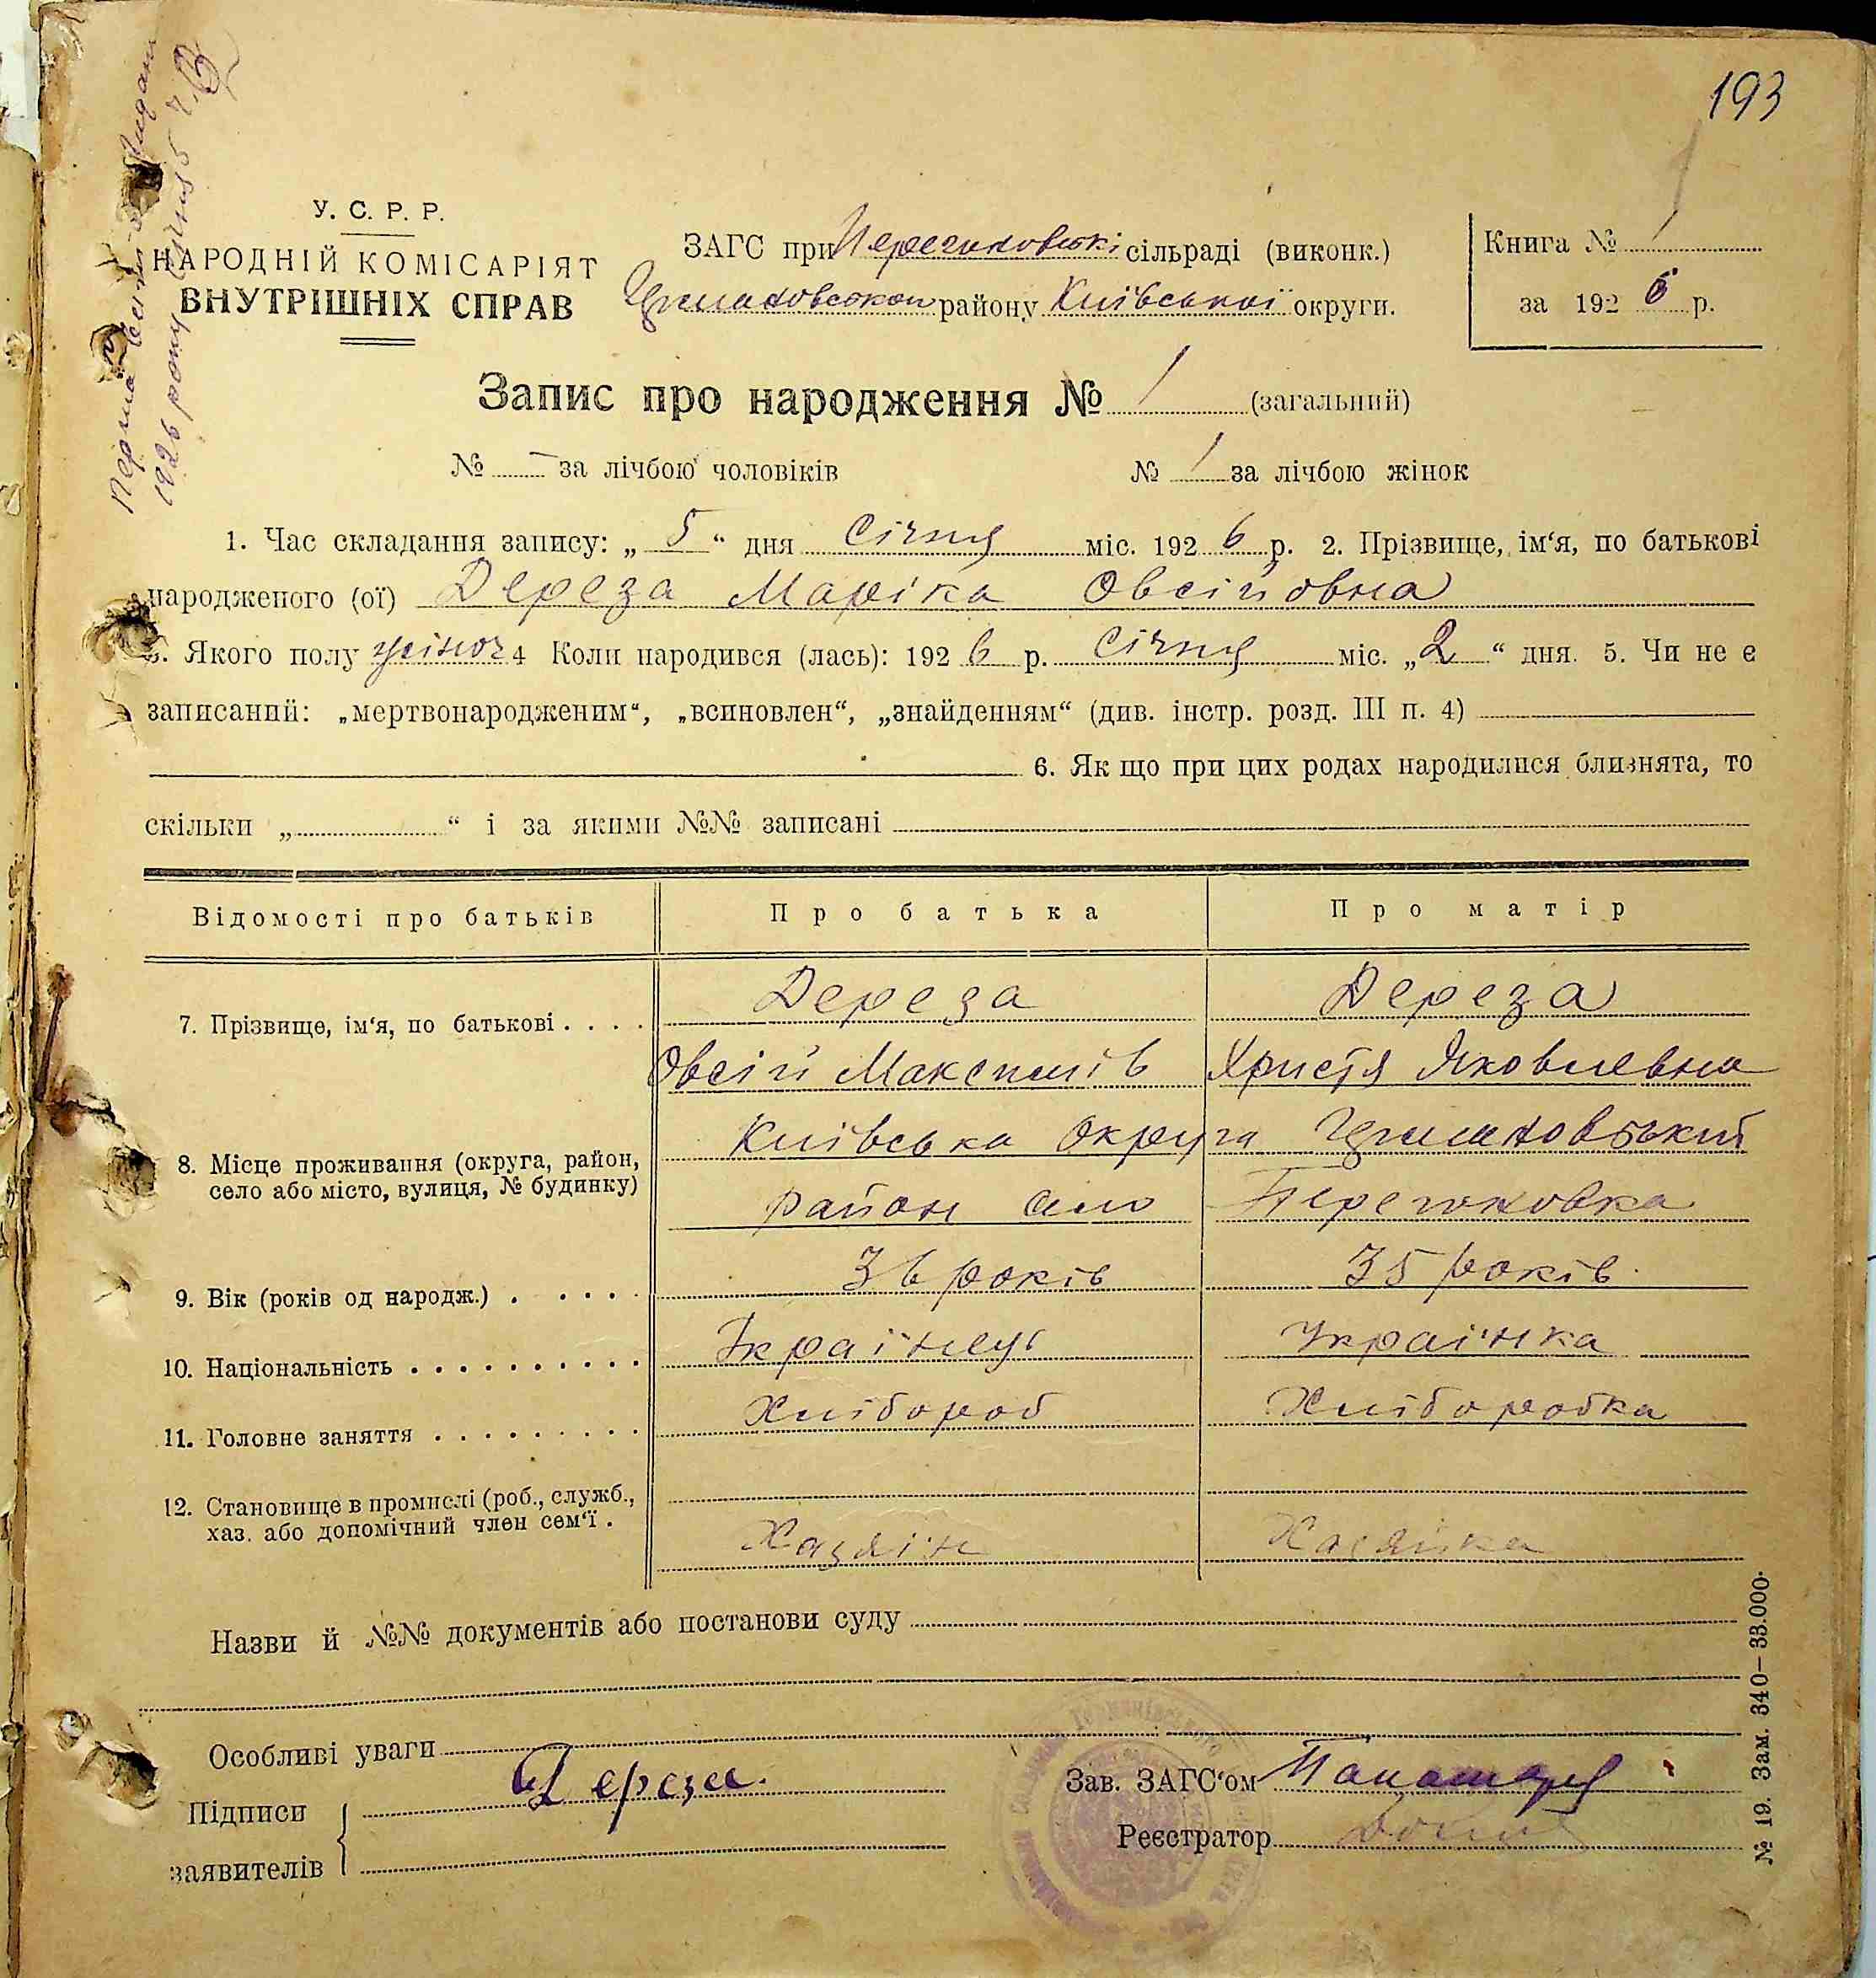 193
Перша
1926 року Січня 5
У. С. Р. Р.
НАРОДНІЙ КОМІСАРІЯТ
ВНУТРІШНІХ СПРАВ
ЗАГС при сільраді (виконк.)
району Київської округи.
Книга № 1
за 1926 р.
Запис про народження № 1 (загальний)
№ – за лічбою чоловіків № 1 за лічбою жінок
1. Час складання запису: „ 5 “ дня Січня міс. 1926 р. 2. Прізвище, ім‘я, по батькові
народженого (ої) Дереза Маріка Овсійовна
3. Якого полу жіноч 4 Коли народився (лась): 1926 р. Січня міс. „ 2 “ дня. 5. Чи не є
записаний: „мертвонародженим“, „всиновлен“, „знайденням“ (див. інстр. розд. III п. 4)
6. Як що при цих родах народилися близнята, то
скільки „ “ і за якими №№ записані
Відомості про батьків Про батька Про матір
Дереза Дереза
7. Прізвище, ім‘я, по батькові . . . .
Овсій Максимів Христя Яковлевна
Київська округа
8. Місце проживання (округа, район,
село або місто, вулиця, № будинку)
район село
9. Вік (років од народж.) . . . . . 36 років 35 років
10. Національність . . . . . . . . . . Українець Українка
11. Головне заняття . . . . . . . . . Хлібороб Хліборобка
12. Становище в промислі (роб., служб.,
хаз. або допомічний член сем‘ї .
Хазяїн Хазяйка
Назви й №№ документів або постанови суду
Особливі уваги
Підписи
заявителів
Дереза.
Зав. ЗАГС‘ом
Реєстратор
№ 19. Зам. 340–33.000.